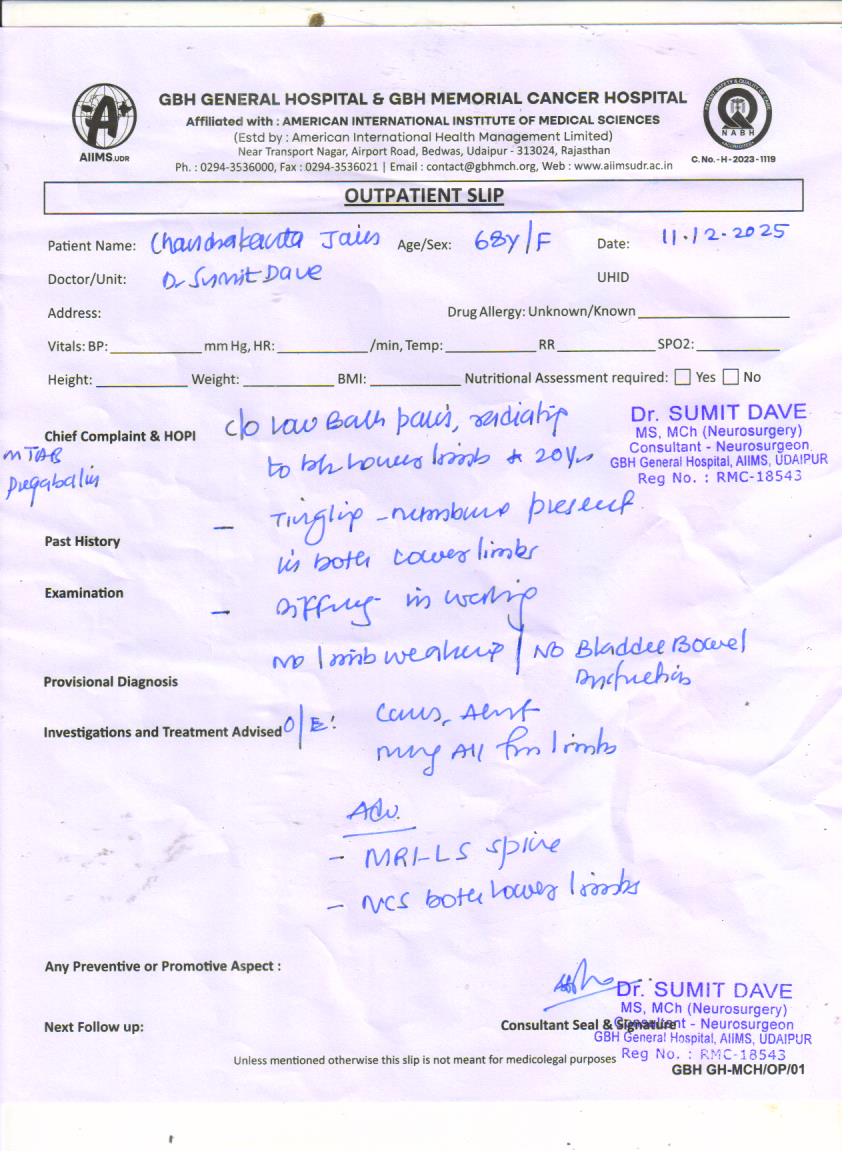 GBH GENERAL HOSPITAL & GBH MEMORIAL CANCER HOSPITAL
Affiliated with : AMERICAN INTERNATIONAL INSTITUTE OF MEDICAL SCIENCES
(Estd by : American International Health Management Limited)
Near Transport Nagar, Airport Road, Bedwas, Udaipur - 313024, Rajasthan
Ph. : 0294-3536000, Fax : 0294-3536021 | Email : contact@gbhmch.org, Web : www.aiimsudr.ac.in
A
AIIMS.UDR
NABH
C. No.-H-2023-1119
OUTPATIENT SLIP
Patient Name: Chandrakanta Jain Age/Sex: 68y/F Date: 11.12.2025
Doctor/Unit: Dr Sumit Dave UHID
Address: Drug Allergy: Unknown/Known
Vitals: BP: mm Hg, HR: /min, Temp: RR SPO2:
Height: Weight: BMI: Nutritional Assessment required: Yes No
Dr. SUMIT DAVE
MS, MCh (Neurosurgery)
Consultant - Neurosurgeon
GBH General Hospital, AIIMS, UDAIPUR
Reg No. : RMC-18543
Chief Complaint & HOPI c/o Low Back pain, radiating
to b/l Lower limbs x 20yrs
TAB
Pregabalin
- Tingling - numbness present
Past History
in both Lower limbs
Examination
- in walking
No limb weakness / No Bladder Bowel
Dysfunction
Provisional Diagnosis
Investigations and Treatment Advised O/E: Cons, Alert
moving All four limbs
Adv.
- MRI-LS spine
- NCS both Lower limbs
Any Preventive or Promotive Aspect :
Next Follow up:
Consultant Seal & Signature
Dr. SUMIT DAVE
MS, MCh (Neurosurgery)
Consultant - Neurosurgeon
GBH General Hospital, AIIMS, UDAIPUR
Reg No. : RMC-18543
Unless mentioned otherwise this slip is not meant for medicolegal purposes
GBH GH-MCH/OP/01